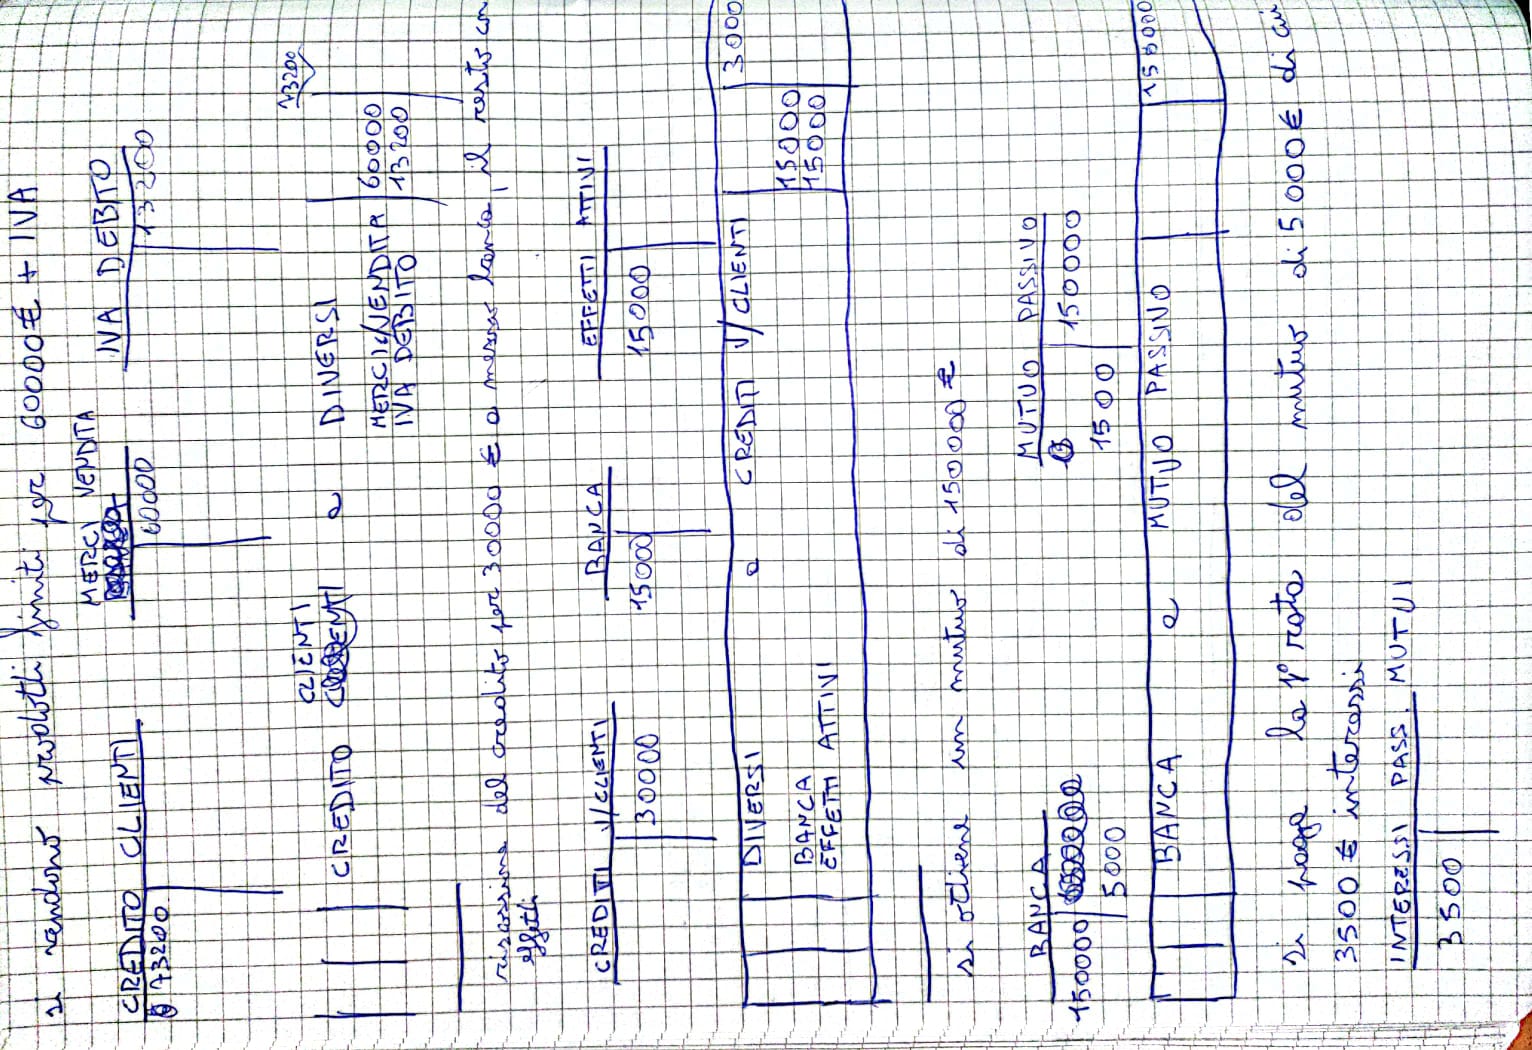 si vendono prodotti finiti per 60000€ + IVA
CREDITO CLIENTI MERCI VENDITA IVA DEBITO
73200 60000 13200
CLIENTI
CREDITO a DIVERSI 73200
MERCI C/VENDITA 60000
IVA DEBITO 13200
riscossione del credito per 30000 € a mezzo banca, il resto con
effetti
CREDITI V/CLIENTI BANCA EFFETTI ATTIVI
30000 15000 15000
DIVERSI a CREDITI V/CLIENTI 3000
BANCA 15000
EFFETTI ATTIVI 15000
si ottiene un mutuo di 150000 €
BANCA MUTUO PASSIVO
150000 150000
5000 1500
BANCA a MUTUO PASSIVO 150000
si paga la 1° rata del mutuo di 5000€ di cui
3500 € interessi
INTERESSI PASS. MUTUI
3500